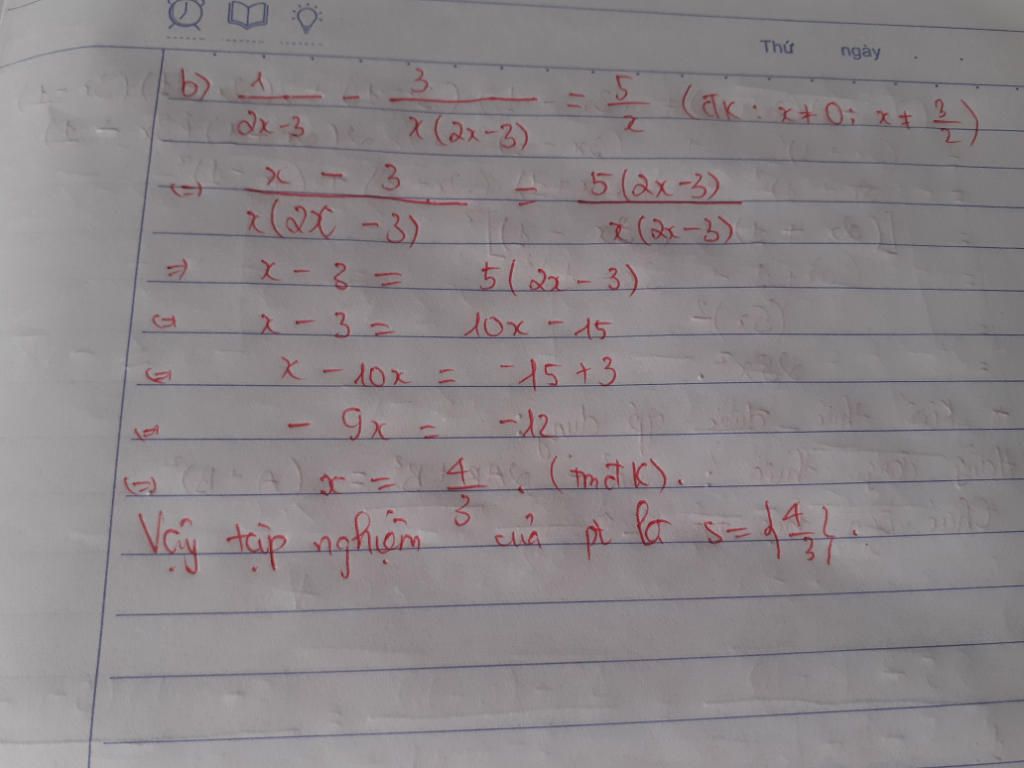 Thứ ngày
b) 1/(2x-3) - 3/(x(2x-3)) = 5/x (đk: x≠0; x≠ 3/2)
<=> (x - 3)/(x(2x - 3)) = 5(2x-3)/(x(2x-3))
=> x - 3 = 5(2x - 3)
<=> x - 3 = 10x - 15
<=> x - 10x = -15 + 3
<=> - 9x = -12
<=> x = 4/3 . (tmđk).
Vậy tập nghiệm của pt là s = {4/3}.